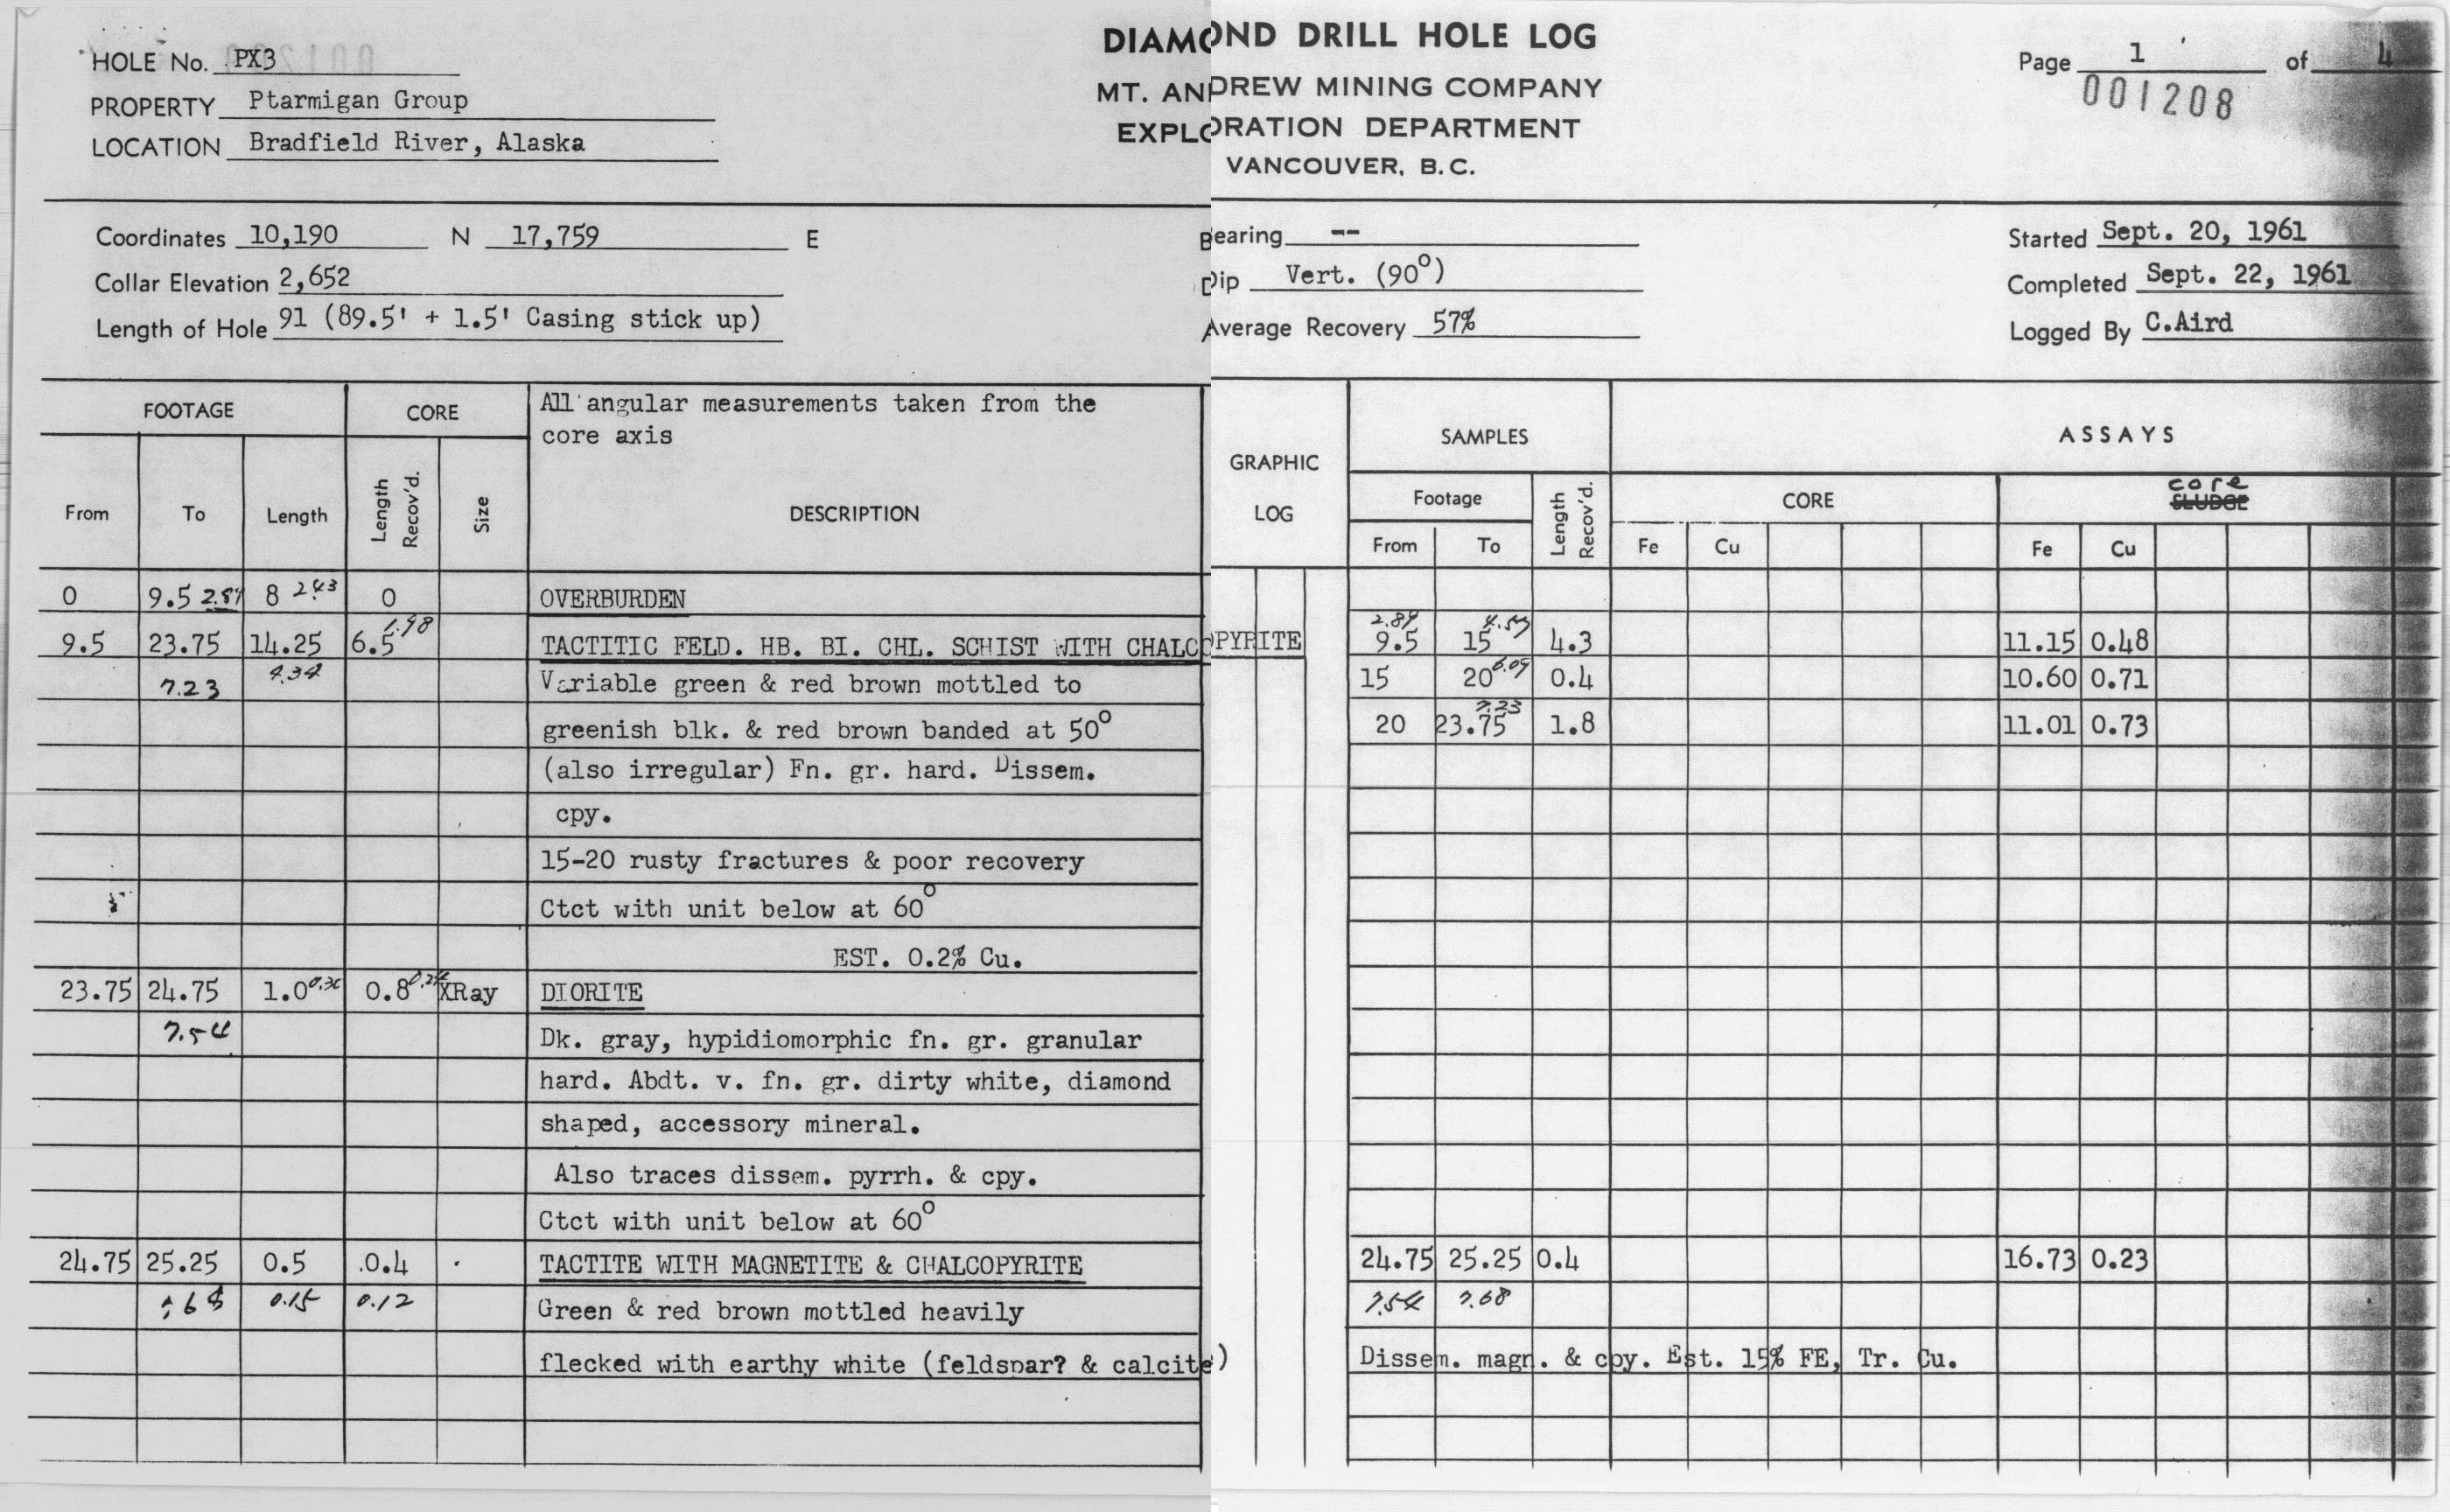 DIAMOND DRILL HOLE LOG
MT. ANDREW MINING COMPANY
EXPLORATION DEPARTMENT
VANCOUVER, B.C.
HOLE No. PX3
PROPERTY Ptarmigan Group
LOCATION Bradfield River, Alaska
Page 1 of 4
001208
Coordinates 10,190 N 17,759 E
Collar Elevation 2,652
Length of Hole 91 (89.5' + 1.5' Casing stick up)
Bearing --
Dip Vert. (90°)
Average Recovery 57%
Started Sept. 20, 1961
Completed Sept. 22, 1961
Logged By C.Aird
FOOTAGE CORE All angular measurements taken from the
core axis
GRAPHIC LOG SAMPLES ASSAYS
From To Length Length Recov'd. Size DESCRIPTION
Footage Length Recov'd. CORE core SLUDGE
From To Fe Cu Fe Cu
0 9.5 2.89 8 2.43 0 OVERBURDEN
1.98 2.89 4.57
9.5 23.75 14.25 6.5 TACTITIC FELD. HB. BI. CHL. SCHIST WITH CHALCOPYRITE 9.5 15 4.3 11.15 0.48
7.23 4.34 Variable green & red brown mottled to 15 20 6.09 0.4 10.60 0.71
7.23
greenish blk. & red brown banded at 50° 20 23.75 1.8 11.01 0.73
(also irregular) Fn. gr. hard. Dissem.
cpy.
15-20 rusty fractures & poor recovery
Ctct with unit below at 60°
EST. 0.2% Cu.
23.75 24.75 1.0 0.30 0.8 0.24 XRay DIORITE
7.54 Dk. gray, hypidiomorphic fn. gr. granular
hard. Abdt. v. fn. gr. dirty white, diamond
shaped, accessory mineral.
Also traces dissem. pyrrh. & cpy.
Ctct with unit below at 60°
24.75 25.25 0.5 0.4 TACTITE WITH MAGNETITE & CHALCOPYRITE 24.75 25.25 0.4 16.73 0.23
0.15 0.12 Green & red brown mottled heavily 7.54 7.68
flecked with earthy white (feldspar? & calcite) Dissem. magn. & cpy. Est. 15% FE, Tr. Cu.